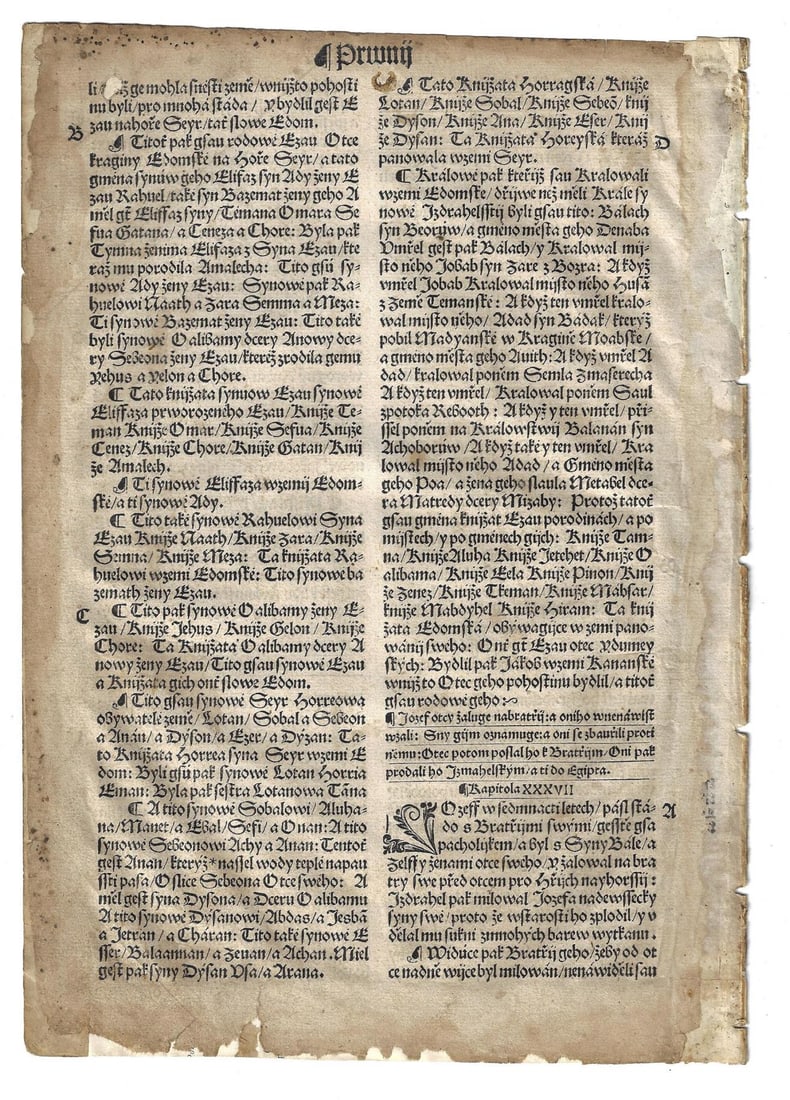 ¶ Prwnij
li ge mohla snesti země/wnijžto pohosti
nu byli/pro mnohá stáda / Y bydlil gest E
zau nahoře Seyr/tať slowe Edom.
B
¶ Titoť pak gsau rodowé Ezau Otce
kraginy Edomské na Hoře Seyr/a tato
gména synuow geho Elifaz syn Ady ženy E
zau Rahuel/ také syn Bazemat ženy geho A
měl gt Eliffaz syny/Témana Omara Se
fua Gatana/ a Ceneza a Chore: Byla pak
Tymna ženima Elifaza z Syna Ezau/kte
ráž mu porodila Amalecha: Tito gsú sy-
nowé Ady ženy Ezau: Synowé pak Ra-
huelowi Naath a Zara Semma a Meza:
Ti synowé Bazemat ženy Ezau: Tito také
byli synowé Oalibamy dcery Anowy dce-
ry Sebeona ženy Ezau/kteréž zrodila gemu
Yehus a Yelon a Chore.
¶ Tato knijžata synuow Ezau synowé
Eliffaza prworozeného Ezau/Knijže Te-
man Knijže Omar/Knijže Sefua/Knijže
Cenez/Knijže Chore/Knijže Gatan/Knij
že Amalech.
¶ Ti synowé Eliffaza wzemij Edom-
ské/a ti synowé Ady.
¶ Tito také synowé Rahuelowi Syna
Ezau Knijže Naath/Knijže Zara/Knijže
Semna/ Knijže Meza: Ta knijžata Ra-
huelowi wzemi Edomské: Tito synowé ba
zemath ženy Ezau.
C
¶ Tito pak synowé Oalibamy ženy E-
zau/Knijže Jehus/Knijže Gelon/Knijže
Chore: Ta Knijžata Oalibamy dcery A
nowy ženy Ezau/Tito gsau synowé Ezau
a Knijžata gich onť slowe Edom.
¶ Tito gsau synowé Seyr Horreowa
obywatelé země/ Lotan/ Sobal a Sebeon
a Anan/ a Dyson/a Ezer/ a Dyzan: Ta-
to Knijžata Horrea syna Seyr wzemi E
dom: Byli gsú pak synowé Lotan Horria
Eman: Byla pak sestra Lotanowa Tana
¶ A tito synowé Sobalowi/Aluha-
na/Manet/a Ebal/Sefi/a Onan: A tito
synowé Sebeonowi Achy a Anan: Tentoť
gest Anan/ kteryž* nassel wody teplé napau
ssti pasa/Oslice Sebeona Otce swého: A
měl gest syna Dysona/a Dceru Oalibamu
A tito synowé Dysanowi/Abdas/a Jesbá
a Jetran / a Charan: Tito také synowé E
sser/Balaannan/a Zeuan/a Achan. Miel
gest pak syny Dysan Vsa/a Arana.
¶ Tato Knijžata Horragská/Knijže
Lotan/Knijže Sobal/Knijže Sebeõ/knij
že Dyson/Knijže Ana/Knijže Eser/Knij
že Dysan: Ta Knijžata Horeyská kteráž
D
panowala wzemi Seyr.
¶ Králowé pak kteřijž sau Kralowali
wzemi Edomské/ dřijwe než měli Krále sy
nowé Jzdrahelsstij byli gsau tito: Bálach
syn Beorijw/a gméno města geho Denaba
Vmřel gest pak Bálach/y Kralowal mij-
sto něho Jobab syn Zare z Bozra: A když
vmřel Jobab Kralowal mijsto něho Husá
z Země Temanské: A když ten vmřel kralo-
wal mijsto něho/ Adad syn Bádak/kteryž
pobil Madyanské w Kragině Moabské/
a gméno města geho Auith: A když vmřel A
dad/ kralowal poněm Semla Zmaserecha
A když ten vmřel/ Kralowal poněm Saul
zpotoka Rebooth: A když y ten vmřel/ při-
ssel poněm na Králowstwij Balanan syn
Achoborijw/A když také y ten vmřel/ Kra
lowal mijsto něho Adad/ a Gméno města
geho Poa/ a žena geho slaula Metabel dce-
ra Matredy dcery Mizaby: Protož tatoť
gsau gména knijžat Ezau porodinách/a po
mijstech/y po gménech gich: Knijže Tam-
na/KnijžeAluha Knijže Jetchet/Knijže O
alibama/ Knijže Eela Knijže Pinon/Knij
že Zenez/Knijže Tkeman/Knijže Mabsar/
knijže Mabdyhel Knijže Hiram: Ta knij
žata Edomská / obywagijce w zemi pano-
wánij swého: Onť gt Ezau otec Ydumey
ských: Bydlil pak Jákob wzemi Kananské
wnijžto Otec geho pohostinu bydlil/a titoť
gsau rodowé geho
¶ Jozef otcy žaluge nabratřij: a oni ho wnenáwist
wzali: Sny gijm oznamuge: a oni se zbauřili proti
němu: Otec potom poslal ho k Bratřijm/Oni pak
prodali ho Jzmahelským/a ti do Egipta.
¶Kapitola XXXVII
A
JOzeff w sedmnácti letech/ pásl stá-
do s Bratřijmi swými/gesstě gsa
pacholijkem/a byl s Syny Bále/a
Zelffy ženami otce swého/Y žalowal na bra
try swé před otcem pro Hřijch nayhorssij:
Jzdrahel pak milowal Jozefa nadewssecky
syny swé/ proto že wstarosti ho zplodil/ y v
dělal mu sukni zmnohých barew wytkanu.
¶ Widúce pak Bratřij geho/žeby od ot
ce nadně wijce byl milowán/nenáwiděli sau